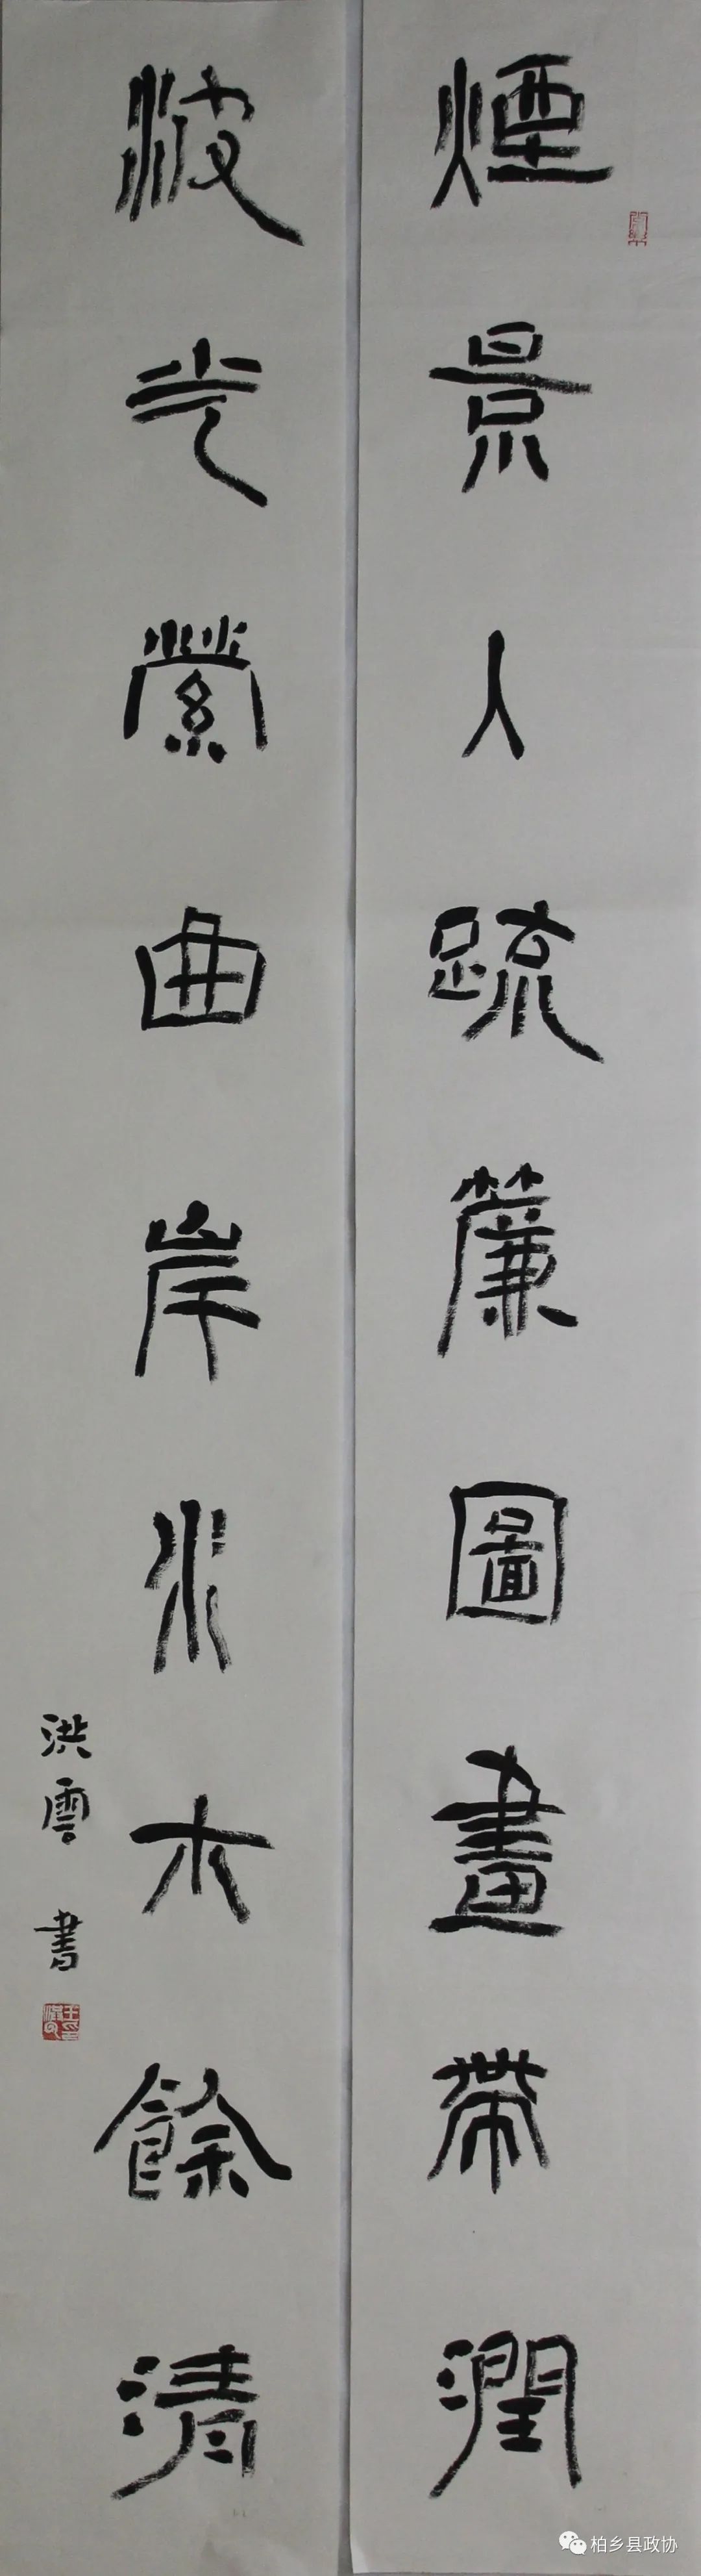 煙景入疏簾圖畫帶潤
波光縈曲岸水木餘清
洪雲書
柏乡县政协